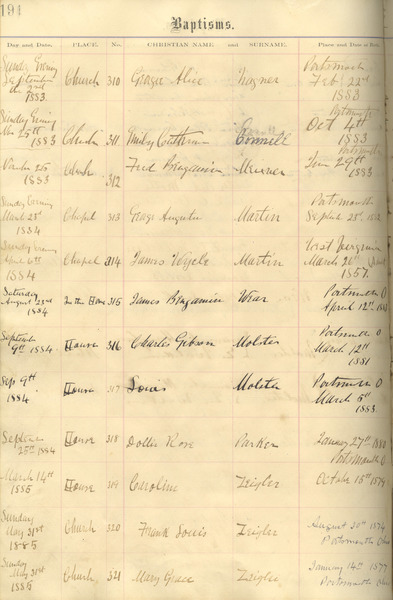 191
Baptisms.
Day and Date. PLACE. No. CHRISTIAN NAME and SURNAME. Place and Date of Birth
Sunday Evening Portsmouth
September Church 310 Alice Wagner Feb 22nd
the 2nd 1883
1883
Sunday Evening Portsmouth
Nov 25th Church 311 Emily Connell Oct 4th
1883 1883
25 Church 312 Fred Benjamin Jan 29th
1883 1883
Sunday Evening Portsmouth
March 23d Chapel 313 George Augustus Martin
1884
Sunday Evening West Virginia
April 6th Chapel 314 James Martin March 26
1884 1857
Saturday Portsmouth O
August 23d In the House 315 James Benjamin Wear April 12th
1884
September Portsmouth O
9th 1884 House 316 Charles Gibson Molster March 12th
1881
Sep 9th Portsmouth O
1884 House 317 Louis Molster March 6th
1883
September House 318 Dollie Rose Parker January 27th 1880
25th 1884 Portsmouth O
March 14th House 319 Caroline Zeigler October 15th 1879
1885
Sunday August 30th 1874
May 31st Church 320 Frank Louis Zeigler Portsmouth Ohio
1885
Sunday January 14th 1877
May 31st Church, 321 Mary Grace Zeigler Portsmouth Ohio
1885